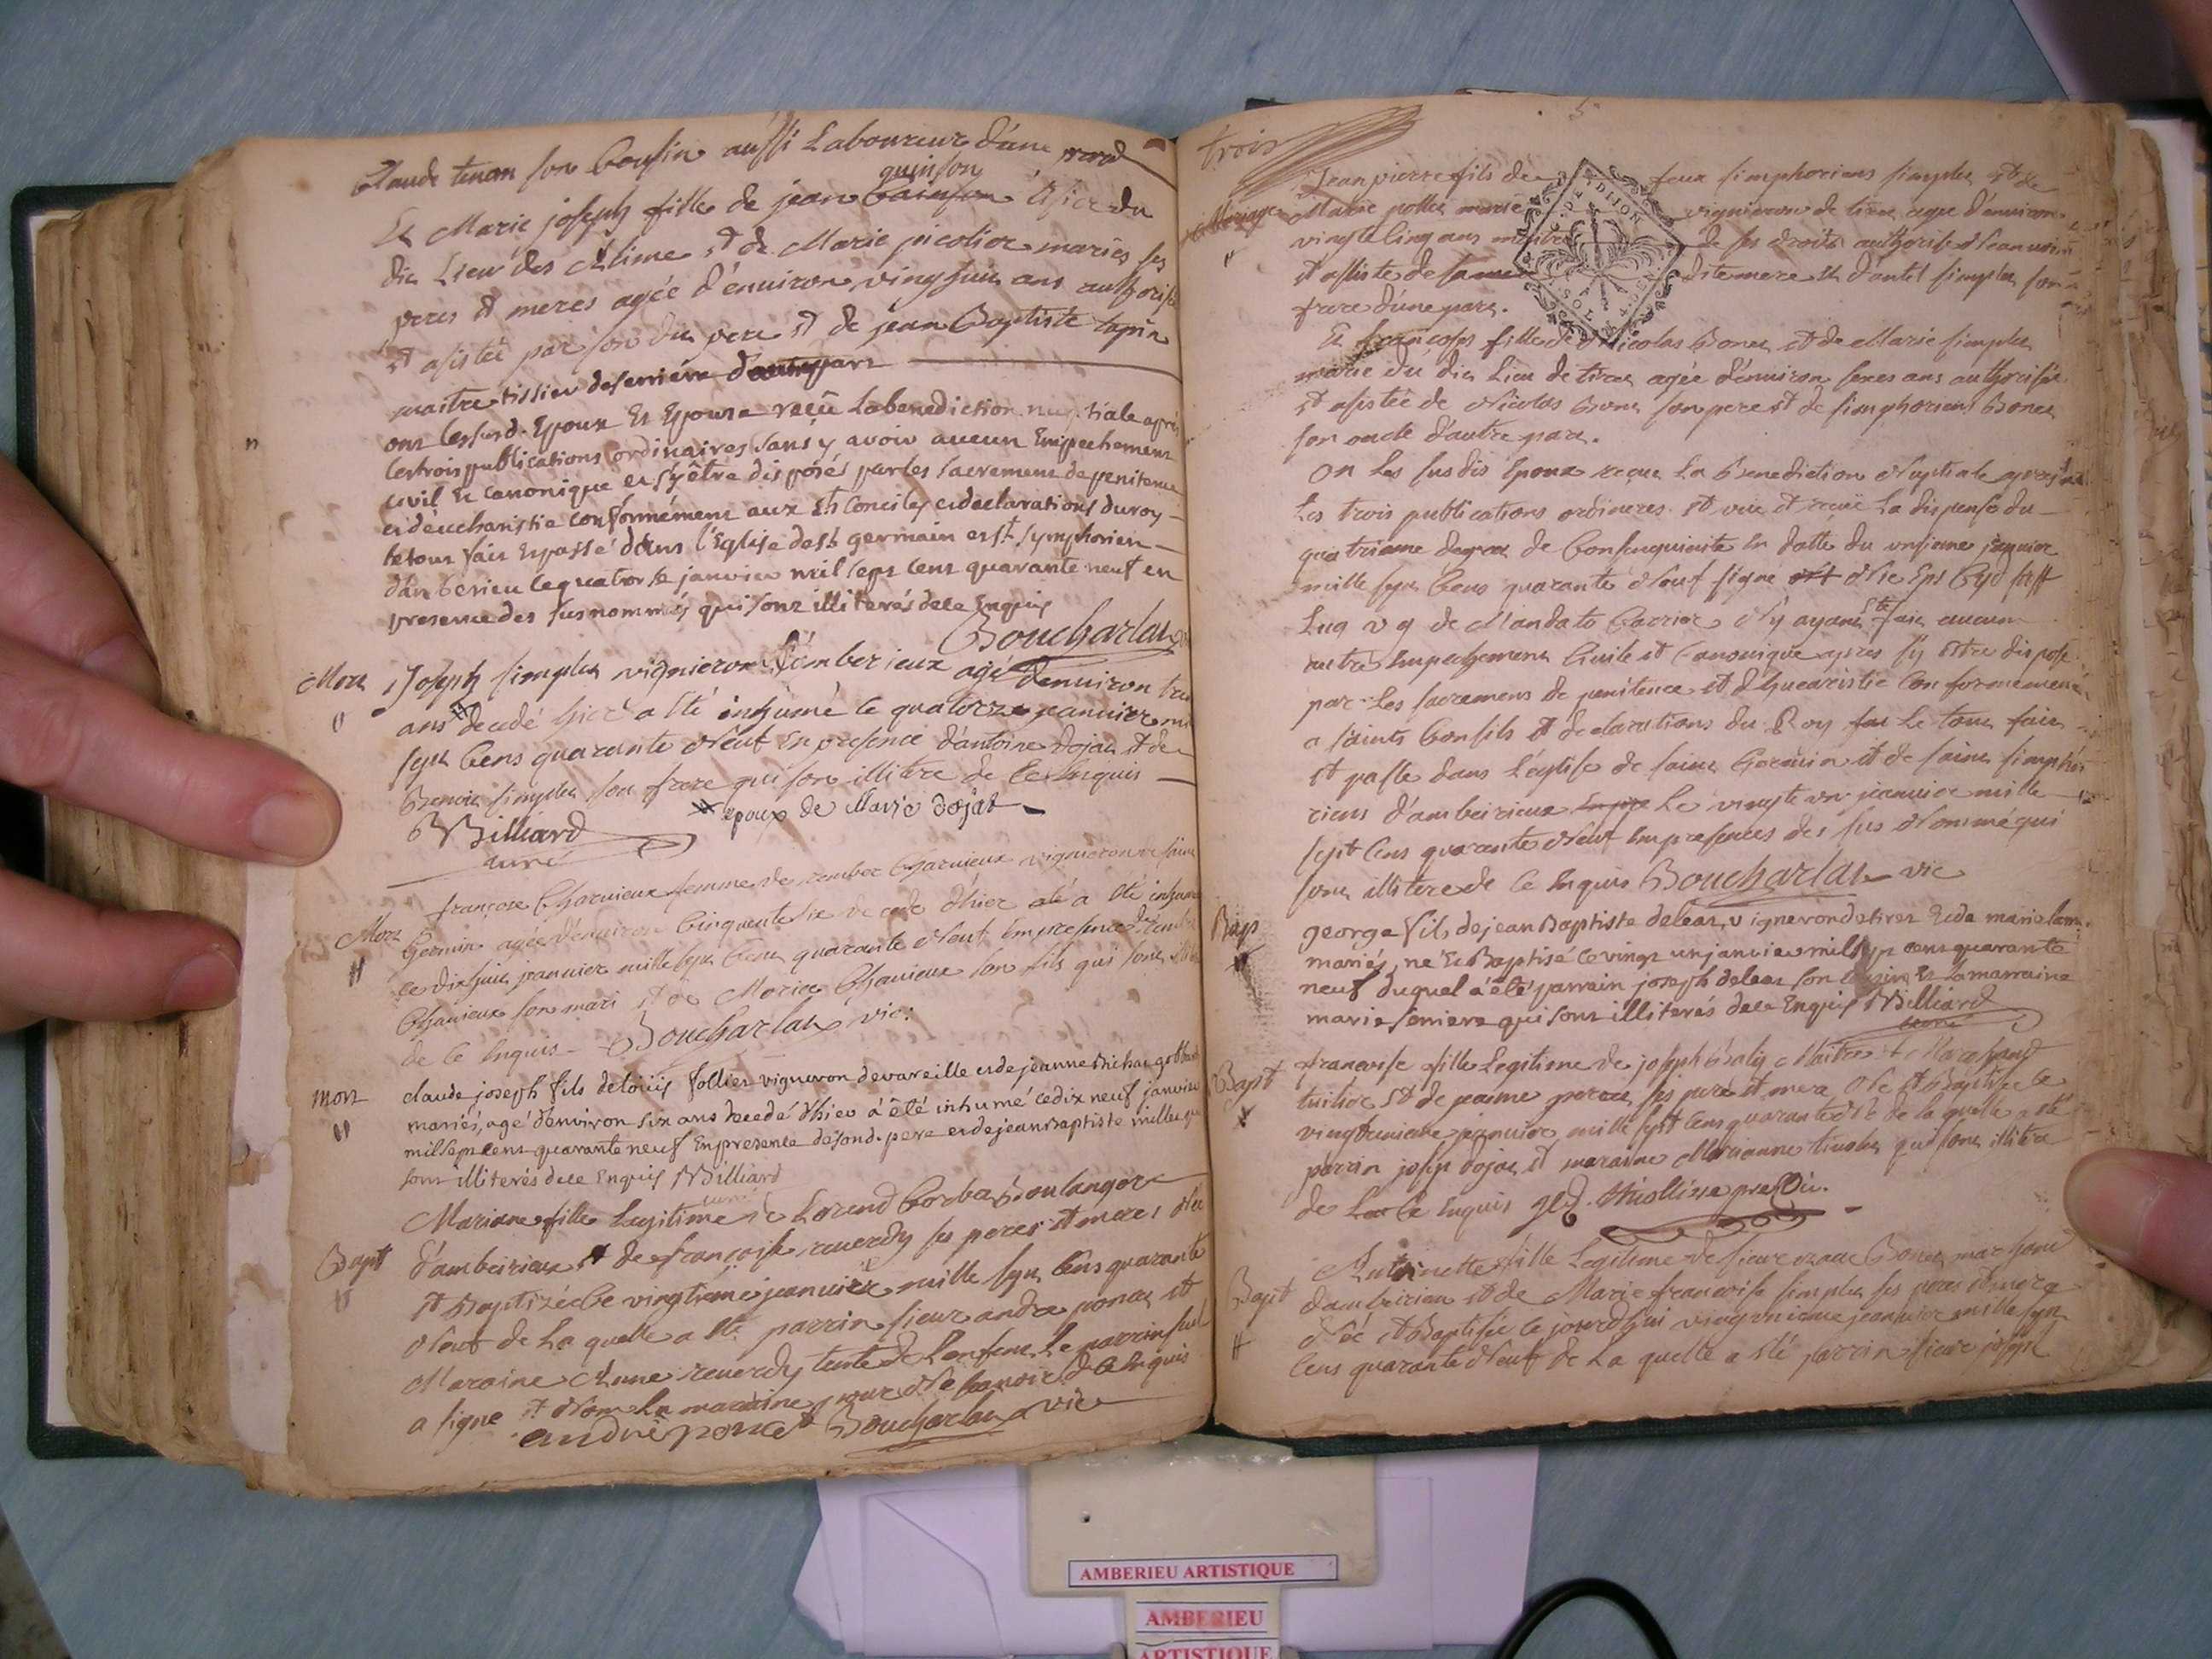 Claude tenan son Cousin aussi Laboureur d'une part
quinson
Et Marie joseph fille de jean tisier du
dit Lieu des Alime et de Marie picolior mariés ses
peres et meres agée d'environ vingt huit ans authorisé
et asistée par son dit pere et de jean Baptiste tapin
maitre tissier d'autre part
ont lesusd. Epoux Et Epouse reçû labenediction nuptiale après
les trois publications ordinaires sans y avoir aucun Empechement
civil Et canonique et s'y être disposés par les sacrements de penitence
et d'eucharistie conformément aux Sts Conciles et declarations du roy
le tout fait Et passé dans l'Eglise de st germain et st Symphorien
d'amberieu le quatorse janvier mil sept cent quarante neuf en
presence des susnommés qui sont illiterés de ce Enquis
Boucharlat
Mort Joseph simplet vignieron d'amberieux agé d'environ
ans decedé hier a été inhumé le quatorze jeanvier
sept Cens quarante Neuf En presence d'antoine dojat et de
Benoit simplet son frere qui son illitere de Ce Enquis
epoux de Marie dojat
Billiard
curé
françoise Charvieux femme de rember Charvieux vigneron de saint
Mort Germin agée d'environ Cinquante six decede d'hier a été inhumé
le dixhuit jeanvier mille sept Cens quarante Neuf En presence de rember
Chavieux son mari et de Morice Chavieux son fils qui sont
de Ce Enquis Boucharlat vic:
mort claude joseph fils de loüis follier vigneron de vareille et de jeanne
mariés, agé d'environ six ans decedé d'hier à été inhumé ce dix neuf janvier
mil sept cent quarante neuf En presence de sond. pere et de jean Baptiste
sont illiterés de ce Enquis Billiard
curé
Mariane fille Legitime de Lorend Corba Boulangere
Bapt d'ambeirieux et de françoise reverdy ses peres et meres Née
et Baptizée Ce vingtiéme jeanvier mille sept Cens quarante
Neuf de La quelle a été parrin sieur andre poncet et
Maraine Anne reverdy tente de L'enfent Le parrin seul
a signe et Non La maraine pour Ne savoir de Ce Enquis
andré poncet Boucharlat vic
trois
5
Jean pierre fils de feux simphorient simplet et de
Mariage Marie pollet marié vignieron de tiret agé d'environ
vingt Cinq ans de ses droits authorisé
et assisté de sa dite mere et d'antel simplet son
frere d'une part.
Et françoise fille de Nicolas Bonet et de Marie simplet
marié du dit Lieu de tiret agée d'environ sezes ans authorisée
et asistée de Nicolas Bonet son pere et de simphorient Bonet
son oncle d'autre part.
On Les susdis Epoux reçue La Benediction Nuptiale après
Les trois publications ordineres et vuë et reçuë La dispense du
quatrieme degree de Consenguinité En datte du onsieme janvier
mille sept Cens quarante Neuf signé
Lug v g de Mandato Carrier N'y ayant été fait aucun
autre Empechement Civile et Canonique apres s'y être disposé
par Les sacremens de penitence et d'Eucaristie Conformement
a saints Consils et declarations du Roy Le tout fait
et passe dans L'eglise de saint Germin et de saint simpho
rient d'ambeirieux Le vingte un jeanvier mille
sept Cens quarante Neuf En presences des sus Nommé qui
sont illitere de Ce Enquis Boucharlat vic
Bap george fils de jean Baptiste deleaz, vigneron de tiret Et de marie
mariés, né Et Baptisé ce vingt un janvier mil sept cent quarante
neuf duquel à été parrain joseph deleaz son cousin Et La marraine
marie seniere qui sont illiterés de ce Enquis Billiard
curé
francoise fille Legitime de joseph Maitre et Marchand
Bapt tuilier et de jeanne ses pere et mere Née et Baptisée le
vingtunieme jeanvier mille sept Cens quarante neuf de la quelle a été
parrin josep dojat et maraine Marianne qui sont illitere
de Ce Enquis
Antoinette fille Legitime de sieur Bonet marchand
Bapt d'ambeirieu et de Marie francoise simplet ses peres et mere
Née et Baptisée Ce jourdhui vingunieme jeanvier mille sept
Cens quarante Neuf de La quelle a été parrin sieur joseph
AMBERIEU ARTISTIQUE
AMBERIEU
ARTISTIQUE